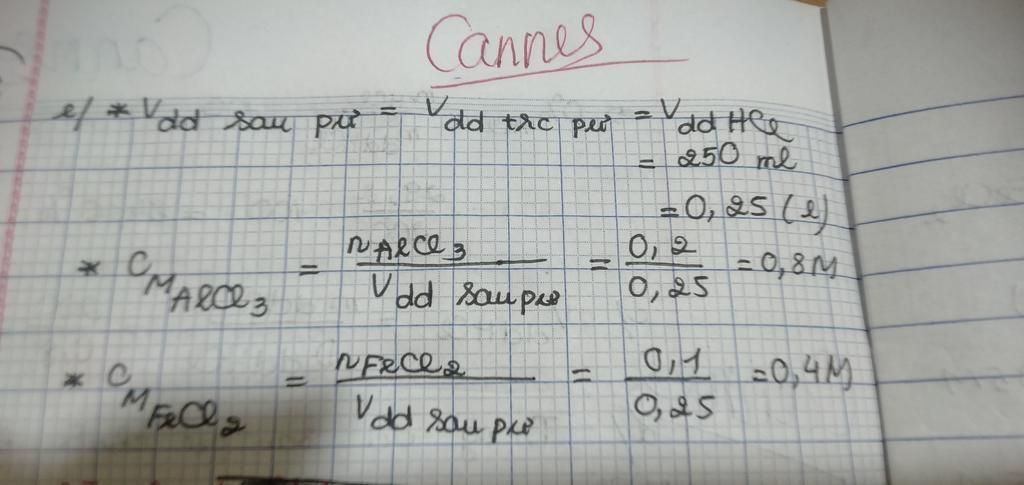 Cannes
e/ * Vdd sau pư = Vdd trc pư = Vdd HCl
= 250 ml
= 0,25 (l)
* CM AlCl3 = nAlCl3 / Vdd sau pư = 0,2 / 0,25 = 0,8M
* CM FeCl2 = nFeCl2 / Vdd sau pư = 0,1 / 0,25 = 0,4M